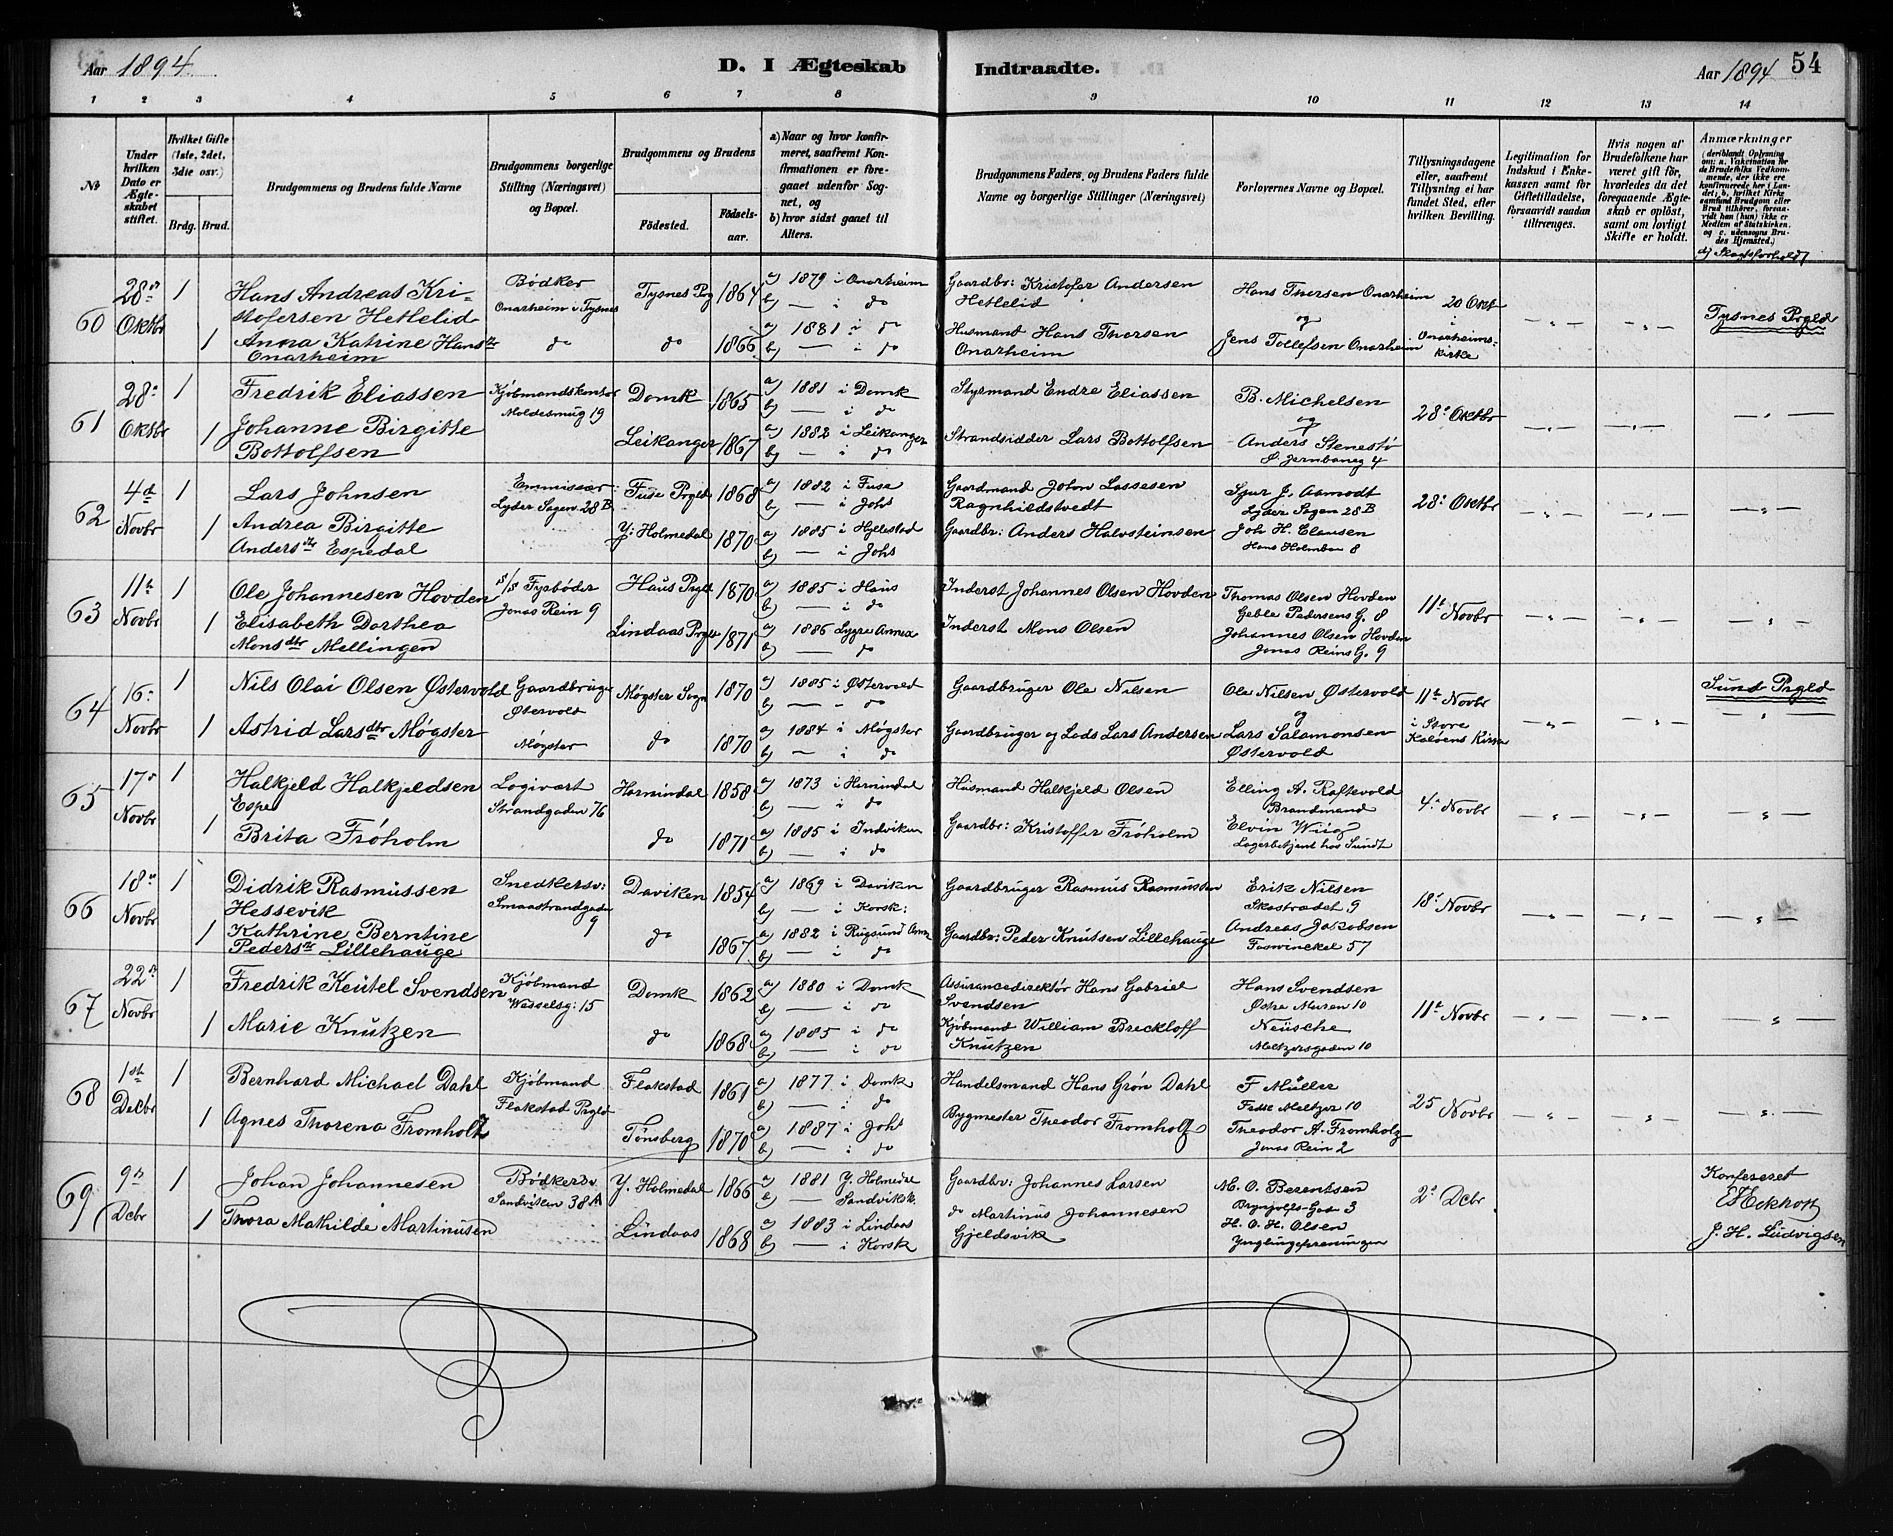 Aar 1894.
D. I Ægteskab Indtraadte.
Aar 1894 54
1 2 3 4 5 6 7 8 9 10 11 12 13 14
№
Under hvilken Dato er Ægteskabet stiftet.
Hvilket Gifte (1ste, 2det, 3die osv.)
Brdg. Brud.
Brudgommens og Brudens fulde Navne
Brudgommens borgerlige Stilling (Næringsvei) og Bopæl.
Brudgommens og Brudens
Födested.
Födselsaar.
a) Naar og hvor konfirmeret, saafremt Konfirmationen er foregaaet udenfor Sognet, og
b) hvor sidst gaaet til Alters.
Brudgommens Faders, og Brudens Faders fulde Navne og borgerlige Stillinger (Næringsvei)
Forlovernes Navne og Bopæl.
Tillysningsdagene eller, saafremt Tillysning ei har fundet Sted, efter hvilken Bevilling.
Legitimation for Indskud i Enkekassen samt for Giftetilladelse, forsaavidt saadan tiltrænges.
Hvis nogen af Brudefolkene har været gift før, hvorledes da det foregaaende Ægteskab er opløst, samt om lovligt Skifte er holdt.
Anmærkninger
(deriblandt Oplysning om: a. Vakcination for de Brudefolks Vedkommende, der ikke ere konfirmerede her i Landet; b. hvilket Kirkesamfund Brudgom eller Brud tilhører, forsaavidt han (hun) ikke er Medlem af Statskirken, og c. udensogns Brudes Hjemsted.)
d) Slægtsforhold
60 28de Oktbr 1 Hans Andreas Kristofersen Hetlelid Bødker Onarheim i Tysnes Tysnes Prg 1864 a) 1879 i Onarheim b) — i do Gaardbr: Kristofer Andersen Hetlelid Hans Thorsen Onarheim 20 Okt i Onarheimskirke — " — — " — Tysnes Prgld
1 Anna Katrine Hansdtr Onarheim do do 1866 a) 1881 i do b) — i do Husmand Hans Thorsen Onarheim og Jens Tollefsen Onarheim
61 28de Oktbr 1 Fredrik Eliassen Kjøbmandskontor Holdesmug 19 Domk 1865 a) 1881 i Domk b) — i do Styrmand Endre Eliassen B. Michelsen 28de Oktbr — " — — " — — " —
1 Johanne Birgitte Bottolfsen Leikanger 1867 a) 1882 i Leikanger b) — i do Strandsidder Lars Bottolfsen og Anders Stenestø Jernbaneg 4
62 4de Novbr 1 Lars Johnsen Emmissær Lyder Sagen 28 B Fuse Prgld 1868 a) 1882 i Fuse b) — i Johs Gaardmand John Lassesen Ragnhildstvedt Sjur J. Aamodt Lyder Sagen 28 B 28de Oktbr — " — — " — — " —
1 Andrea Birgitte Andersdtr Espedal Y: Holmedal 1870 a) 1885 i Hyllestad b) — i Johs Gaardbr: Anders Halvsteinsen Joh H. Clausen Hans Holmboe 8
63 11te Novbr 1 Ole Johannesen Hovden s/s Fyrbøder Jonas Rein 9 Haus Prgld 1870 a) 1885 i Haus b) — i do Inderst Johannes Olsen Hovden Thomas Olsen Hovden Geble Pedersens G. 8 11te Novbr — " — — " — — " —
1 Elisabeth Dorthea Monsdtr Mellingen Lindaas Prgld 1871 a) 1886 Lygre Annex b) — do Inderst Mons Olsen Johannes Olsen Hovden Jonas Reins G. 9
64 16de Novbr 1 Nils Olai Olsen Østervold Gaardbruger Østervold Møgster Sogn 1870 a) 1885 i Østervold b) — " do Gaardbruger Ole Nilsen Ole Nilsen Østervold 11te Novbr i Store Kaløens Kirke — " — — " — Sund Prgld — " —
1 Astrid Larsdtr Møgster Møgster do 1870 a) 1884 i Møgster b) — i do Gaardbruger og Lods Lars Andersen og Lars Salamonsen Østervold
65 17de Novbr 1 Halkjeld Halkjeldsen Espe Logivært Strandgaden 76 Hornindal 1858 a) 1873 i Hornindal b) — i do Husmand Halkjeld Olsen Elling A. Raftevold Brandmand 4de Novbr — " — — " — — " —
1 Brita Frøholm do 1871 a) 1885 i Indviken b) — i do Gaardbr: Kristoffer Frøholm Elvin Wiig Lagerbetjent hos Sundt
66 18de Novbr 1 Didrik Rasmussen Hessevik Snedkersv: Smaastrandgaden 9 Daviken 1854 a) 1869 i Daviken b) — i Korsk: Gaardbruger Rasmus Rasmussen Erik Nilsen Skostrædet 9 18de Novbr — " — — " — — " —
1 Kathrine Berntine Pedersdtr Lillehauge do 1867 a) 1882 i Rugsund Anx b) — i do Gaardbr: Peder Knutsen Lillehauge Andreas Jakobsen Foswinckel 57
67 22de Novbr 1 Fredrik Keutel Svendsen Kjøbmand Wesselsg: 15 Domk 1862 a) 1880 i Domk b) — i do Assurancedirektør Hans Gabriel Svendsen Hans Svendsen Østre Muren 10 11te Novbr — " — — " — — " —
1 Marie Knutzen do 1868 a) 1885 i do b) — i do Kjøbmand William Breckloff Knutzen Neusche Meltzersgaden 10
68 1ste Decbr 1 Bernhard Michael Dahl Kjøbmand Flakstad Prgld Flakstad 1861 a) 1877 i Domk b) — i do Handelsmand Hans Grøn Dahl F Müller Fedte Meltzer 10 25 Novbr — " — — " — — " —
1 Agnes Thorena Fromholtz Tønsberg 1870 a) 1887 i Joht b) — i do Bygmester Theodor Fromholz Theodor A. Fromholz Jonas Rein 2
69 9de Dcbr 1 Johan Johannesen Bødkersv. Sandviken 38 A Y. Holmedal 1866 a) 1881 Y. Holmedal b) — Sandviksk. Gaardbr: Johannes Larsen M. O. Berentsen Brynjolfs-Gaa 3 2de Dcbr
1 Thora Mathilde Martinusen Lindaas 1868 a) 1883 i Lindaas b) — i Korsk do Martinus Johannesen Gjeldsvik H. O. H. Olsen Ynglingeforeningen
Konfereret
Eckhoff
J. H. Ludvigsen